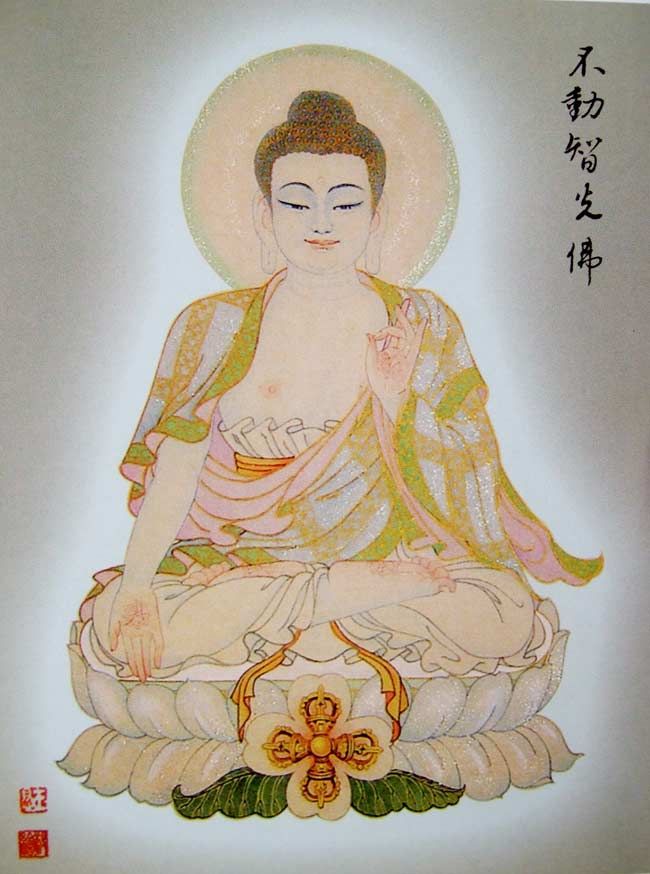 不動智光佛